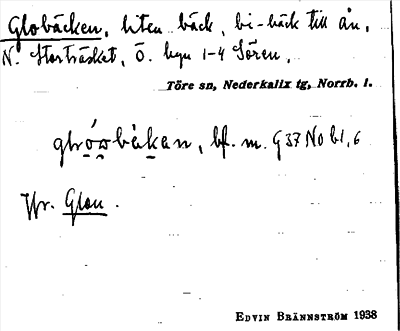 Globäcken, liten bäck, bi-bäck till ån,
N. Storträsket, Ö. byn 1-4 Sören.
Töre sn, Nederkalix tg, Norrb. l.
bäkan, bf. m. G 37 No b1, 6
Jfr. Glon.
EDVIN BRÄNNSTRÖM 1938